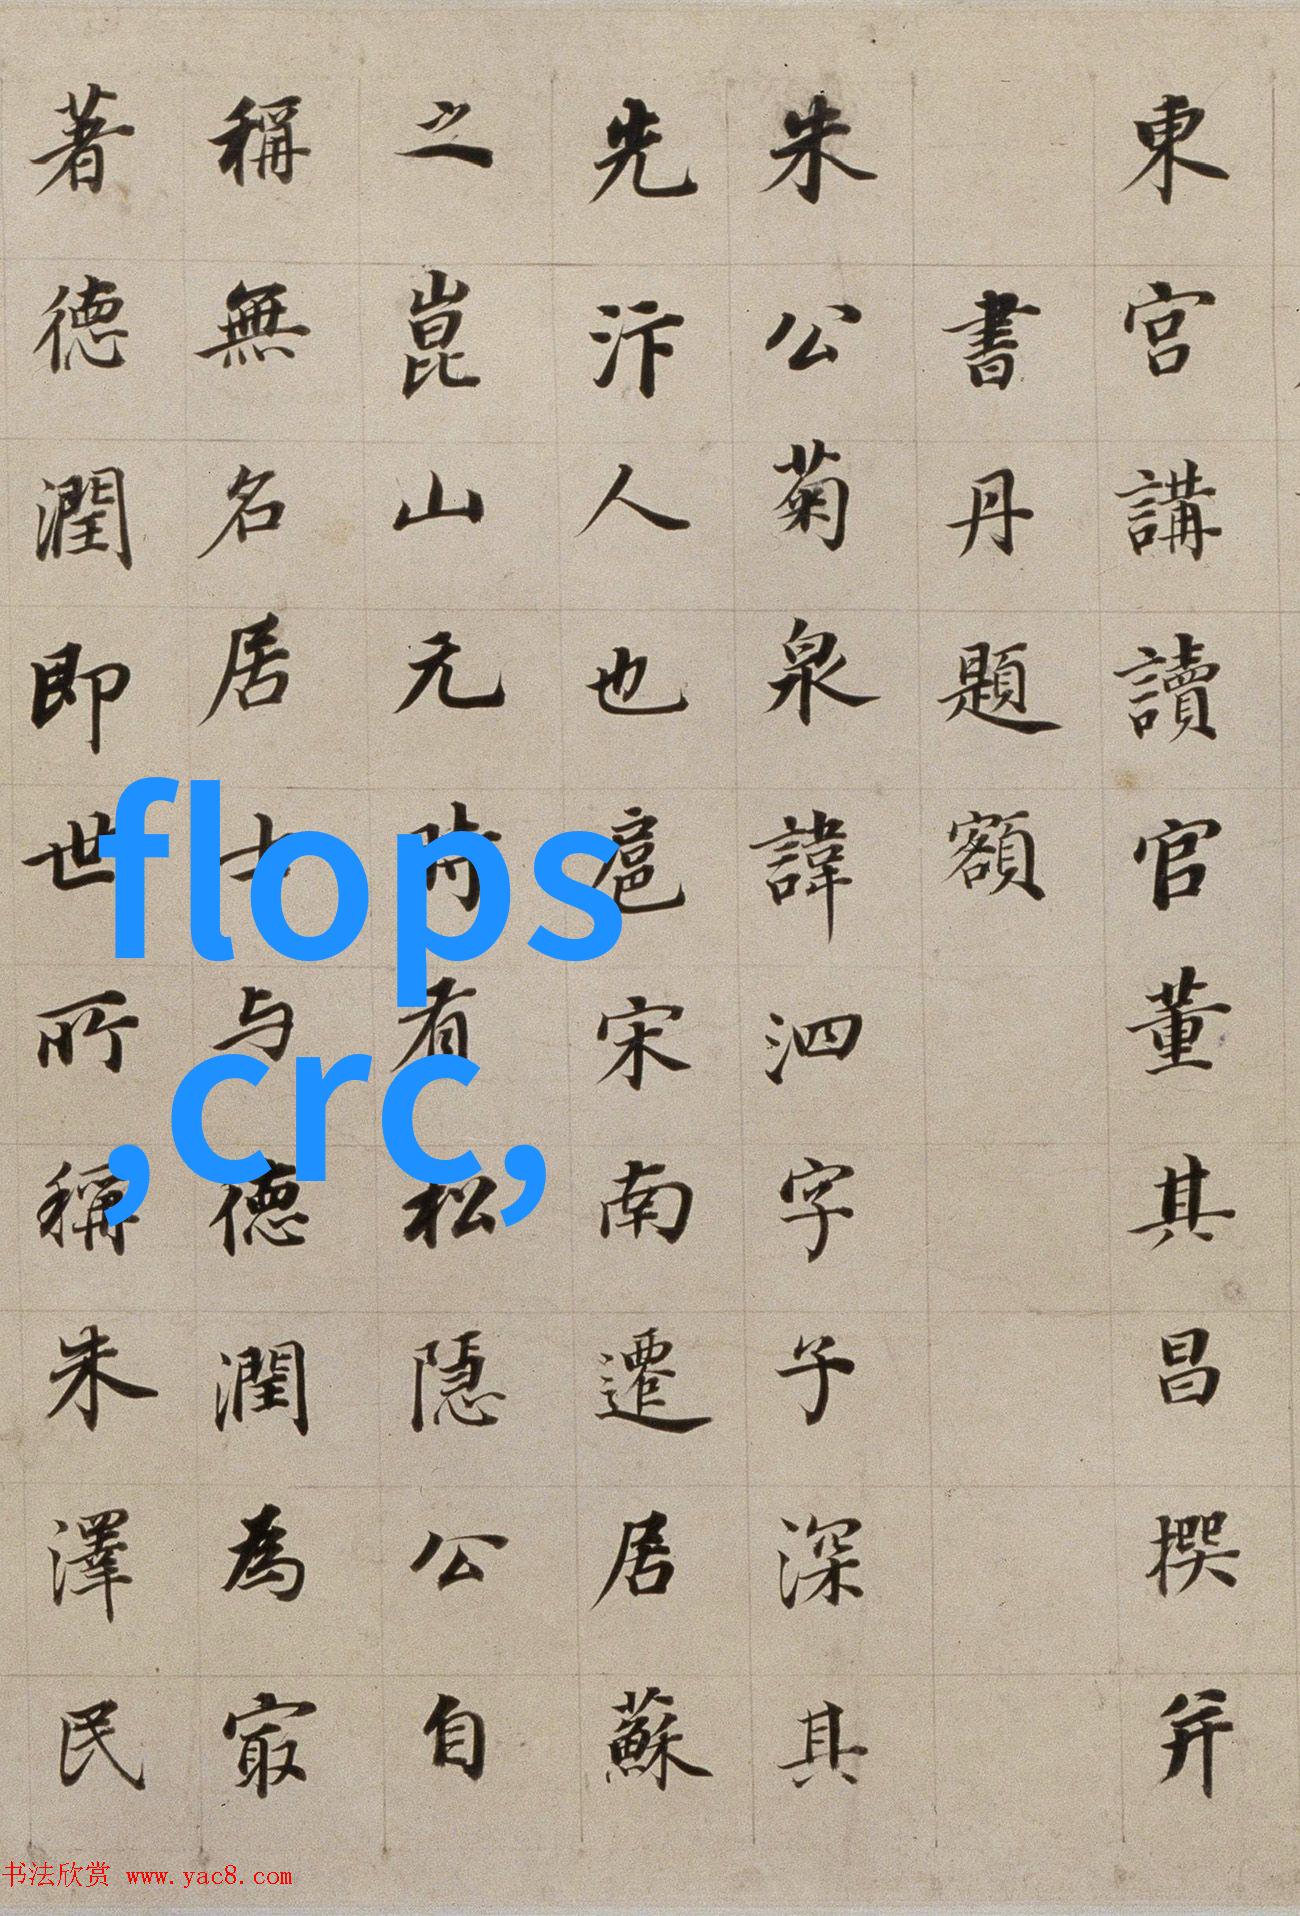 東宮講讀官董其昌撰并
書丹題額
朱公菊泉諱泗字子深其
先汴人也扈宋南遷居蘇
之崑山元時有松隱公自
稱無名居士与德潤為冣
著德潤即世所稱朱澤民
flops
,crc,
书法欣赏 www.yac8.com